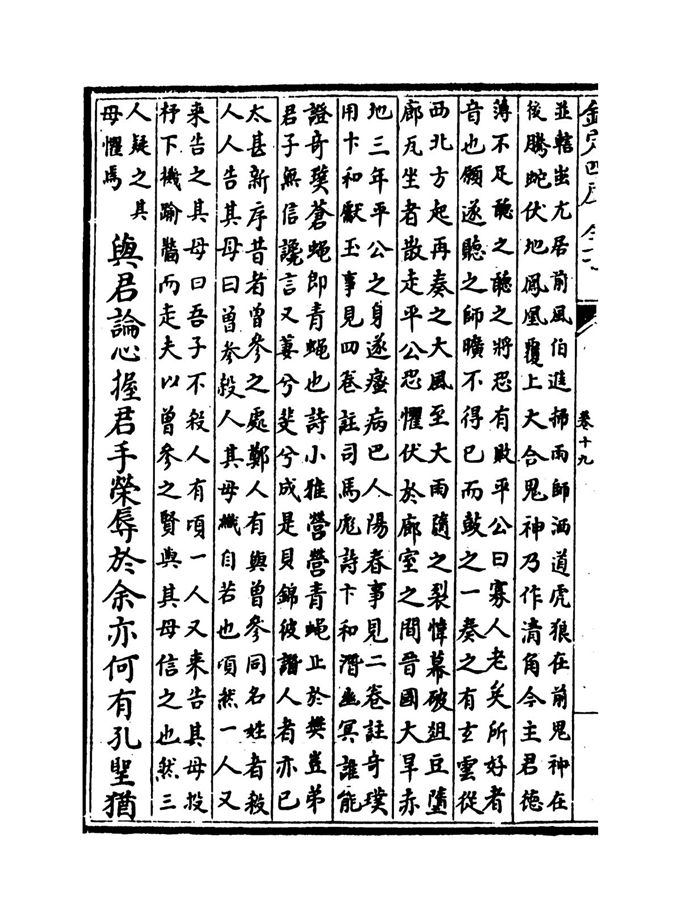 卷十九
並轄蚩尤居前風伯進掃雨師洒道虎狼在前鬼神在
後騰蛇伏地鳳凰覆上大合鬼神乃作清角今主君德
薄不足聽之聽之將恐有敗平公曰寡人老矣所好者
音也願遂聽之師曠不得已而鼓之一奏之有玄雲從
西北方起再奏之大風至大雨隨之裂帷幕破俎豆墮
廊瓦坐者散走平公恐懼伏於廊室之間晉國大旱赤
地三年平公之身遂癃病巴人陽春事見二卷註奇璞
用卞和獻玉事見四卷註司馬彪詩卞和潛幽冥誰能
證奇璞蒼蠅即青蠅也詩小雅營營青蠅止於樊豈弟
君子無信讒言又萋兮斐兮成是貝錦彼譖人者亦已
太甚新序昔者曾參之處鄭人有與曾參同名姓者殺
人人告其母曰曾參殺人其母織自若也頃然一人又
來告之其母曰吾子不殺人有頃一人又來告其母投
杼下機踰牆而走夫以曾參之賢與其母信之也然三
人疑之其
母懼焉
與君論心握君手榮辱於余亦何有孔聖猶